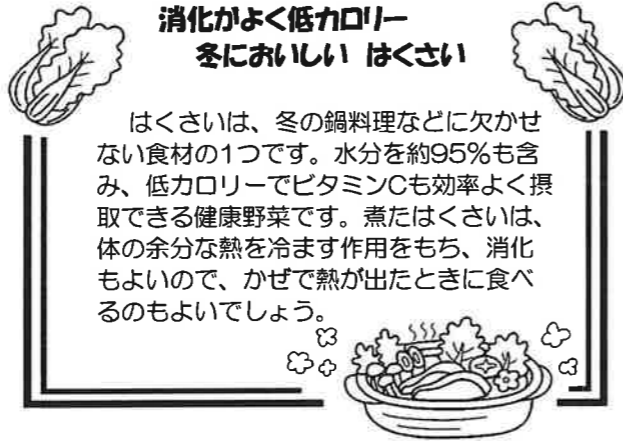 消化がよく低カロリー
冬においしい はくさい
はくさいは、冬の鍋料理などに欠かせ
ない食材の1つです。水分を約95%も含
み、低カロリーでビタミンCも効率よく摂
取できる健康野菜です。煮たはくさいは、
体の余分な熱を冷ます作用をもち、消化
もよいので、かぜで熱が出たときに食べ
るのもよいでしょう。